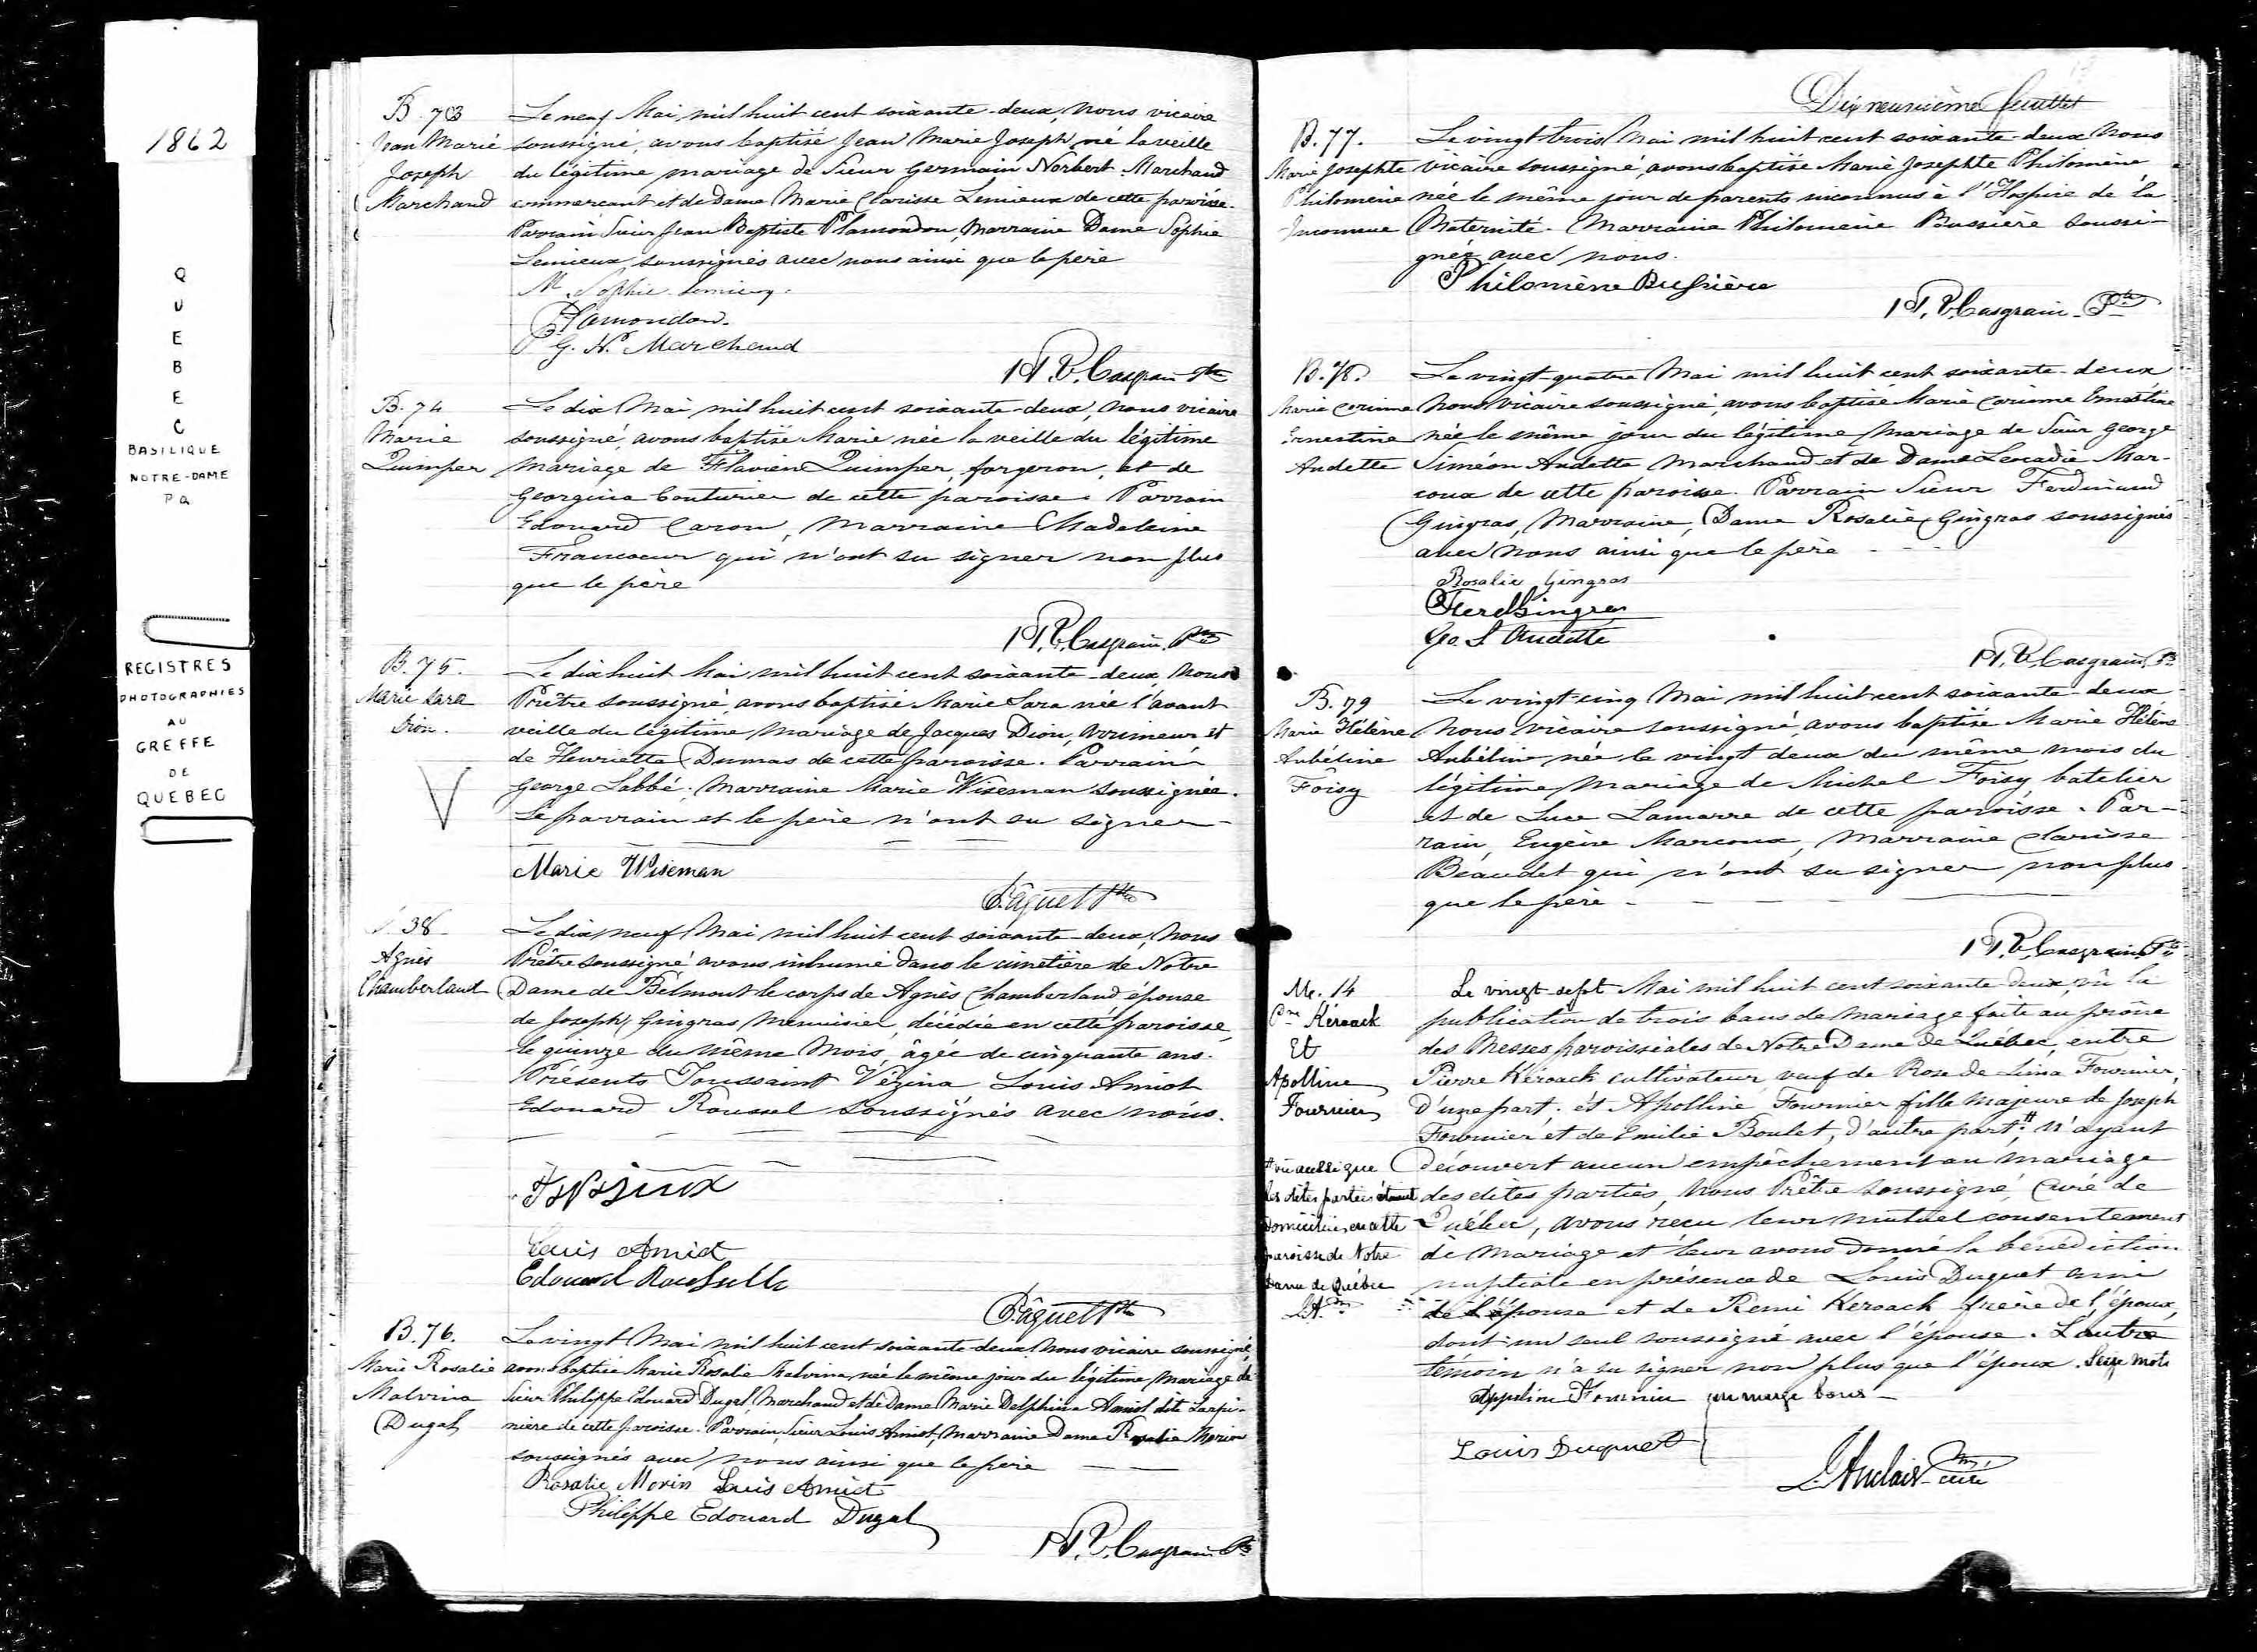 1862
Q
U
E
B
E
C
BASILIQUE
NOTRE-DAME
P Q
REGISTRES
PHOTOGRAPHIES
AU
GREFFE
DE
QUEBEC
B. 73
Jean Marie
Joseph
Marchand
Le neuf Mai mil huit cent soixante-deux, Nous vicaire
soussigné, avons baptisé Jean Marie Joseph, né la veille
du légitime mariage de Sieur Germain Norbert Marchand
commerçant et de Dame Marie Clarisse Lemieux de cette paroisse.
Parrain Sieur Jean Baptiste Plamondon, Marraine Dame Sophie
Lemieux soussignés avec nous ainsi que le père
M. Sophie Lemieux
Plamondon
G. N. Marchand
H. R. Casgrain Ptre
B. 74
Marie
Quimper
Le dix Mai mil huit cent soixante-deux, nous vicaire
soussigné, avons baptisé Marie née la veille du légitime
Mariage de Flavien Quimper, forgeron, et de
Georgina Couturier de cette paroisse. Parrain
Edouard Caron, Marraine Madeleine
Francoeur qui n'ont su signer non plus
que le père
H. R. Casgrain Ptre
B. 75.
Marie Sara
Dion.
Le dix huit Mai mil huit cent soixante-deux, Nous
Prêtre soussigné, avons baptisé Marie Sara née l'avant
veille du légitime Mariage de Jacques Dion, arrimeur et
de Henriette Dumas de cette paroisse. Parrain
George Labbé, Marraine Marie Wiseman soussignée.
Le parrain et le père n'ont su signer -
Marie Wiseman
Pâquet Ptre
S. 38
Agnès
Chamberland
Le dix neuf Mai mil huit cent soixante-deux, Nous
Prêtre soussigné avons inhumé dans le cimetière de Notre
Dame de Belmont le corps de Agnès Chamberland épouse
de Joseph Gingras Menuisier, décédée en cette paroisse,
le quinze du même Mois, âgée de cinquante ans.
Présents Toussaint Vézina Louis Amiot
Edouard Roussel soussignés avec nous.
Louis Amiot
Edouard Roussel
Pâquet Ptre
B. 76.
Marie Rosalie
Malvina
Dugal
Le vingt Mai mil huit cent soixante-deux Nous vicaire soussigné,
avons baptisé Marie Rosalie Malvina, née le même jour du légitime Mariage de
Sieur Philippe Edouard Dugal Marchand et de Dame Marie Delphine Amiot dite Larpi-
nière de cette paroisse. Parrain, Sieur Louis Amiot, Marraine Dame Rosalie Morin
soussignés avec nous ainsi que le père
Rosalie Morin Louis Amiot
Philippe Edouard Dugal
H. R. Casgrain Ptre
Dix neuvième feuillet
B. 77.
Marie Josephte
Philomène
Inconnue
Le vingt-trois Mai mil huit cent soixante-deux Nous
vicaire soussigné avons baptisé Marie Josephte Philomène
née le même jour de parents inconnus à l'Hospice de la
Maternité. Marraine Philomène Bussière soussi-
gnée avec nous.
Philomène Bussière
H. R. Casgrain Ptre
B. 78.
Marie Corinne
Ernestine
Audette
Le vingt-quatre Mai mil huit cent soixante-deux
Nous Vicaire soussigné, avons baptisé Marie Corinne Ernestine
née le même jour du légitime Mariage de Sieur George
Siméon Audette Marchand et de Dame Léocadie Mar-
coux de cette paroisse. Parrain Sieur Ferdinand
Gingras, Marraine, Dame Rosalie Gingras soussignés
avec nous ainsi que le père
Rosalie Gingras
Ferd Gingras
Geo. S. Audette
H. R. Casgrain Ptre
B. 79
Marie Hélène
Aubéline
Foisy
Le vingt-cinq Mai mil huit cent soixante-deux
Nous Vicaire soussigné, avons baptisé Marie Hélène
Aubéline née le vingt deux du même mois du
légitime Mariage de Michel Foisy batelier
et de Luce Lamarre de cette paroisse. Par-
rain, Eugène Marcoux, Marraine Clarisse
Beaudet qui n'ont su signer non plus
que le père -
H. R. Casgrain Ptre
M. 14
Pre Keroack
Et
Apolline
Fournier
Le vingt-sept Mai mil huit cent soixante deux, vû la
publication de trois bans de Mariage faite au prône
des Messes paroissiales de Notre Dame de Québec, entre
Pierre Keroack cultivateur, veuf de Rose de Lima Fournier,
d'une part; et Apolline Fournier fille majeure de Joseph
Fournier et de Emilie Boulet, d'autre part; # n'ayant
découvert aucun empêchement au mariage
des dites parties, Nous Prêtre soussigné, Curé de
Québec, avons reçu leur mutuel consentement
de mariage et leur avons donné la bénédiction
nuptiale en présence de Louis Duquet ami
de l'épouse et de Remi Keroack frère de l'époux,
dont un seul soussigné avec l'épouse. L'autre
témoin n'a su signer non plus que l'époux. Seize mots
en marge bons -
# vu aussi que
les dites parties étaient
domiciliées en cette
paroisse de Notre
Dame de Québec
Appoline Fournier
Louis Duquet
Auclair curé